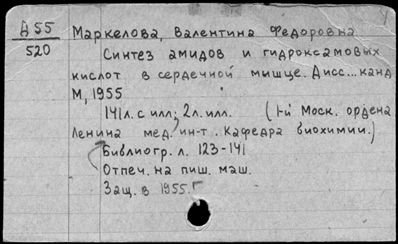 Д 55
520
Маркелова, Валентина Федоровна
Синтез амидов и гидроксамовых
кислот в сердечной мышце. Дисс...канд
М, 1955
141 л. с илл; 2 л. илл. (1-й Моск. ордена
Ленина мед. ин-т. Кафедра биохимии.)
Библиогр. л. 123-141
Отпеч. на пиш. маш.
Защ. в 1955 г